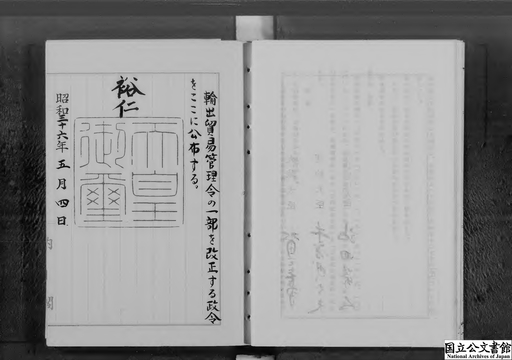 輸出貿易管理令の一部を改正する政令
をここに公布する。
裕仁
天皇
御璽
昭和三十六年五月四日
内閣
国立公文書館
National Archives of Japan